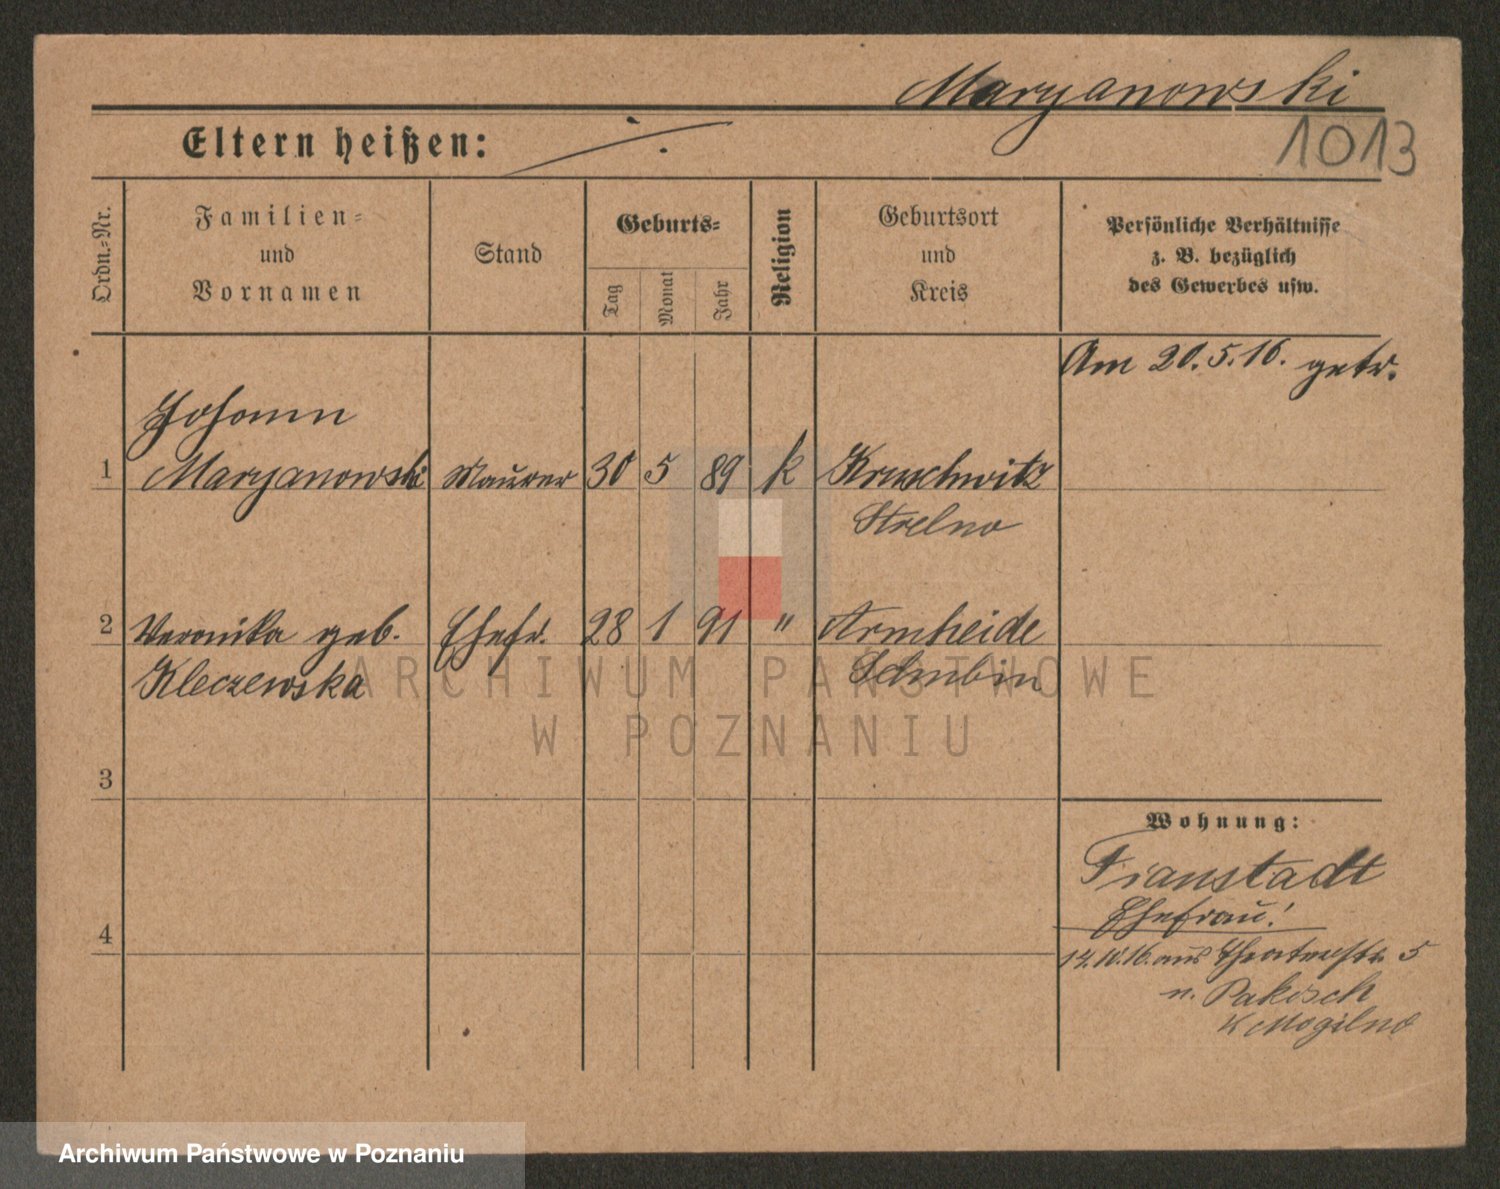 Maryanowski
1013
Eltern heißen: ·/·
Ordn.-Nr.
Familien- und Vornamen
Stand
Geburts-
Tag
Monat
Jahr
Religion
Geburtsort und Kreis
Persönliche Verhältnisse
z. B. bezüglich
des Gewerbes usw.
Am 20.5.16. getr.
Johann
1 Maryanowski Maurer 30 5 89 k Kruschwitz
Strelno
2 Veronika geb. Ehefr. 28 1 91 " Armheide
Kleczewska Schubin
3
Wohnung:
Fraustadt
Ehefrau!
4
14.10.16. aus Theaterstr. 5
n. Pakosch
K Mogilno
ARCHIWUM PAŃSTWOWE
W POZNANIU
Archiwum Państwowe w Poznaniu